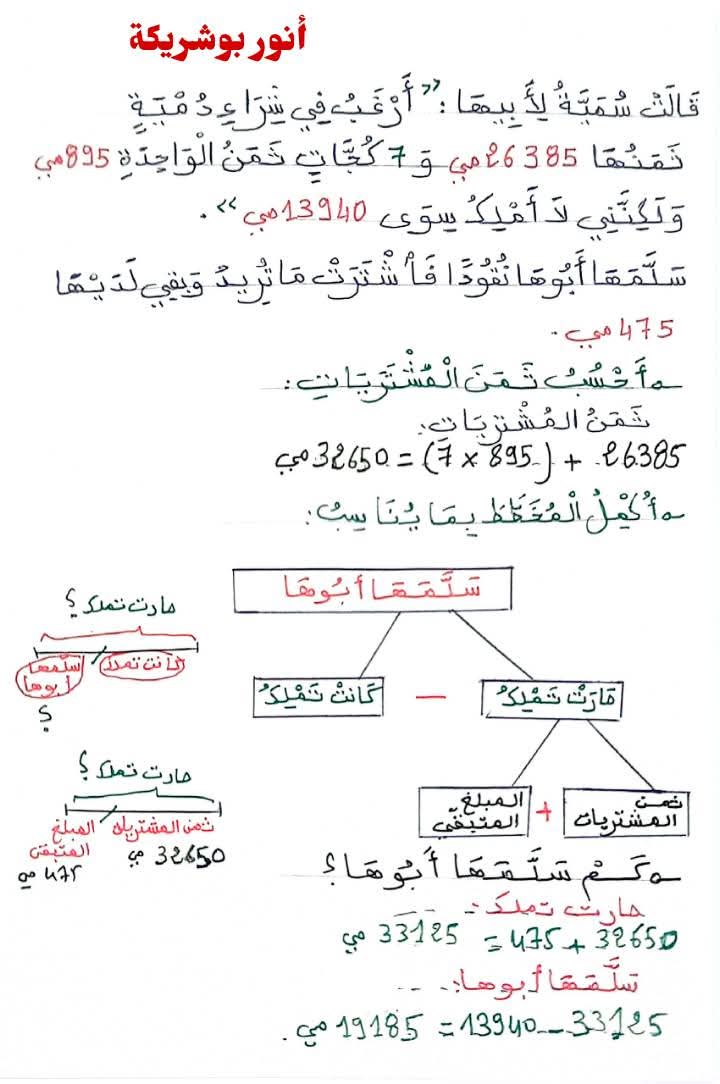 أنور بوشريكة
قَالَتْ سُمَيَّةُ لِأَبِيهَا : "أَرْغَبُ فِي شِرَاءِ دُمْيَةٍ
ثَمَنُهَا 26385 مي وَ 7 كُجَّاتٍ ثَمَنُ الْوَاحِدَةِ 895 مي
وَلَكِنَّنِي لَا أَمْلِكُ سِوَى 13940 مي".
سَلَّمَهَا أَبُوهَا نُقُودًا فَاشْتَرَتْ مَا تُرِيدُ وَبَقِيَ لَدَيْهَا
475 مي.
أَحْسُبُ ثَمَنَ الْمُشْتَرَيَاتِ :
ثَمَنُ المُشْتَرَيَات:
26385 + (895 × 7) = 32650 مي
أُكْمِلُ الْمُخَطَّطَ بِمَا يُنَاسِبُ :
سَلَّمَهَا أبُوهَا
صارت تملك ؟
كانت تملك
سلمها أبوها
؟
صَارَتْ تَمْلِكُ
−
كَانَتْ تَمْلِكُ
صارت تملك ؟
ثمن المشتريات
المبلغ المتبقى
32650 مي
475 مي
ثمن المشتريات
+
المبلغ المتبقى
كَمْ سَلَّمَهَا أَبُوهَا ؟
صارت تملك :
32650 + 475 = 33125 مي
سَلَّمَهَا أبوها:
33125 − 13940 = 19185 مي.